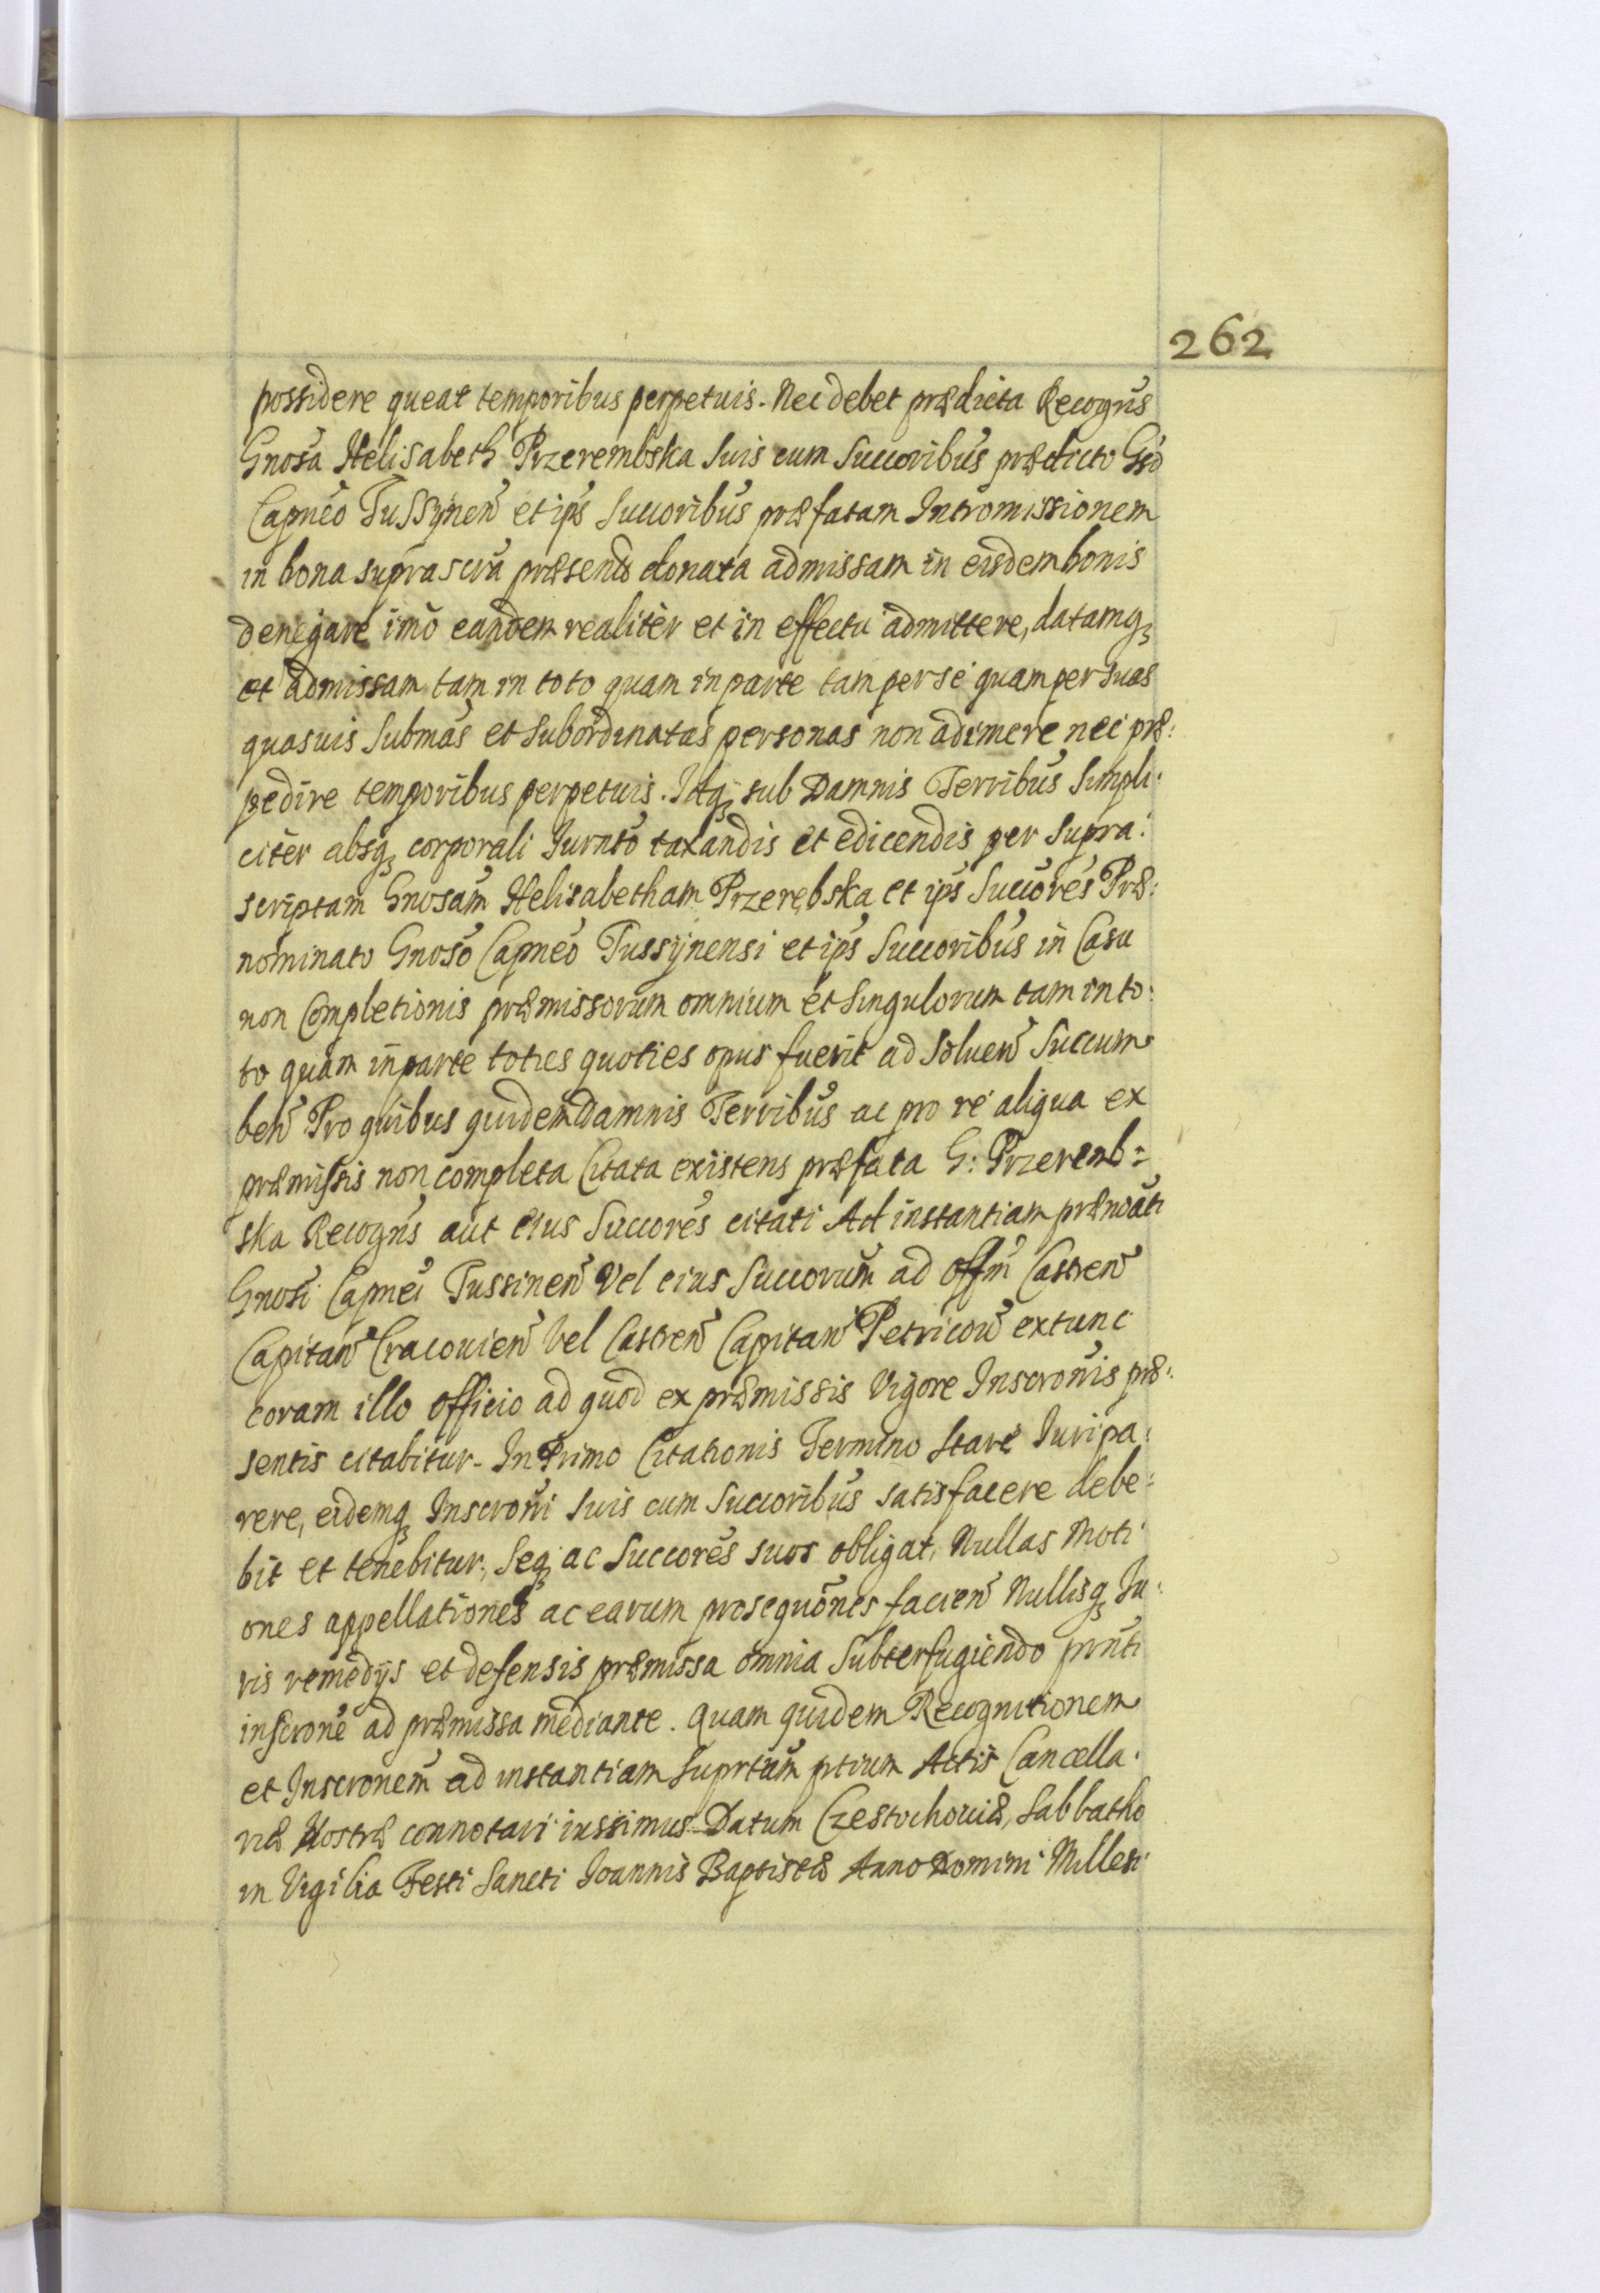 262
possidere queat temporibus perpetuis. Nec debet prædicta Recogñs
Gnosa Helisabeth Przerembska suis cum succoribus prædicto Gsõ
Capnéo Tussÿneñ et ips succoribus præfatam Intromissionem
in bona suprascra præsentò donata admissam in eisdem bonis
denegare imò eandem realitèr et in effectu admittere, datamq3
et admissam tam in toto quam in parte tam per se quam per suas
quasuis submas et subordinatas personas non adimere nec præ:
pedire temporibus perpetuis. Idq3 sub Damnis Terribus simpli:
citèr absq3 corporali Jurnto taxandis et edicendis per supra:
scriptam Gnosam Helisabetham Przerębska et ips succores Præ:
nominato Gnoso Capneo Tussÿnensi et ips succoribus in Casu
non Completionis præmissorum omnium et singulorum tam in to:
to quam in parte toties quoties opus fuerit ad soluen succum
ben Pro quibus quidem Damnis Terribus ac pro re aliqua ex
præmissis non completa Citata existens præfata G: Przeremb:
ska Recogñs aut eius succores citati Ad instantiam prænoati
Gnosi Capnei Tussineñ Vel eius succorum ad offm Castreñ
Capitañ Cracouieñ Vel Castreñ Capitañ Petricoũ extunc
coram illo officio ad quod ex præmissis Vigore Inscronis præ:
sentis citabitur. In Primo Citationis Termino stare Juri pa:
rere, eidemq3 Inscroni suis cum succoribus satisfacere debe:
bit et tenebitur, seq3 ac succores suos obligat, Nullas Moti
ones appellationes ac earum prosequōnes facien Nullisq3 Ju:
ris remedÿs et defensis præmissa omnia subterfugiendo prnti
inscrone ad præmissa mediante. Quam quidem Recognitionem
et Inscronem ad instantiam suprtum ptium Actis Cancella:
riæ Nostræ connotari iussimus. Datum Czestochouiæ, Sabbatho
in Vigilia Festi Sancti Joannis Baptistæ Anno Domini Millesi